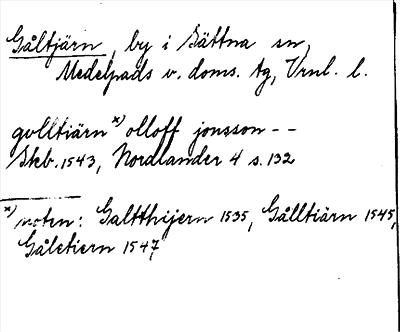 Gåltjärn, by i Sättna sn,
Medelpads v. doms. tg, Vrnl. l.
gvlltiärn x) olloff jonsson - -
Skb. 1543, Nordlander 4 s. 132
x) noten: Galtthijern 1535, Gålltiärn 1545,
Gåletiern 1547